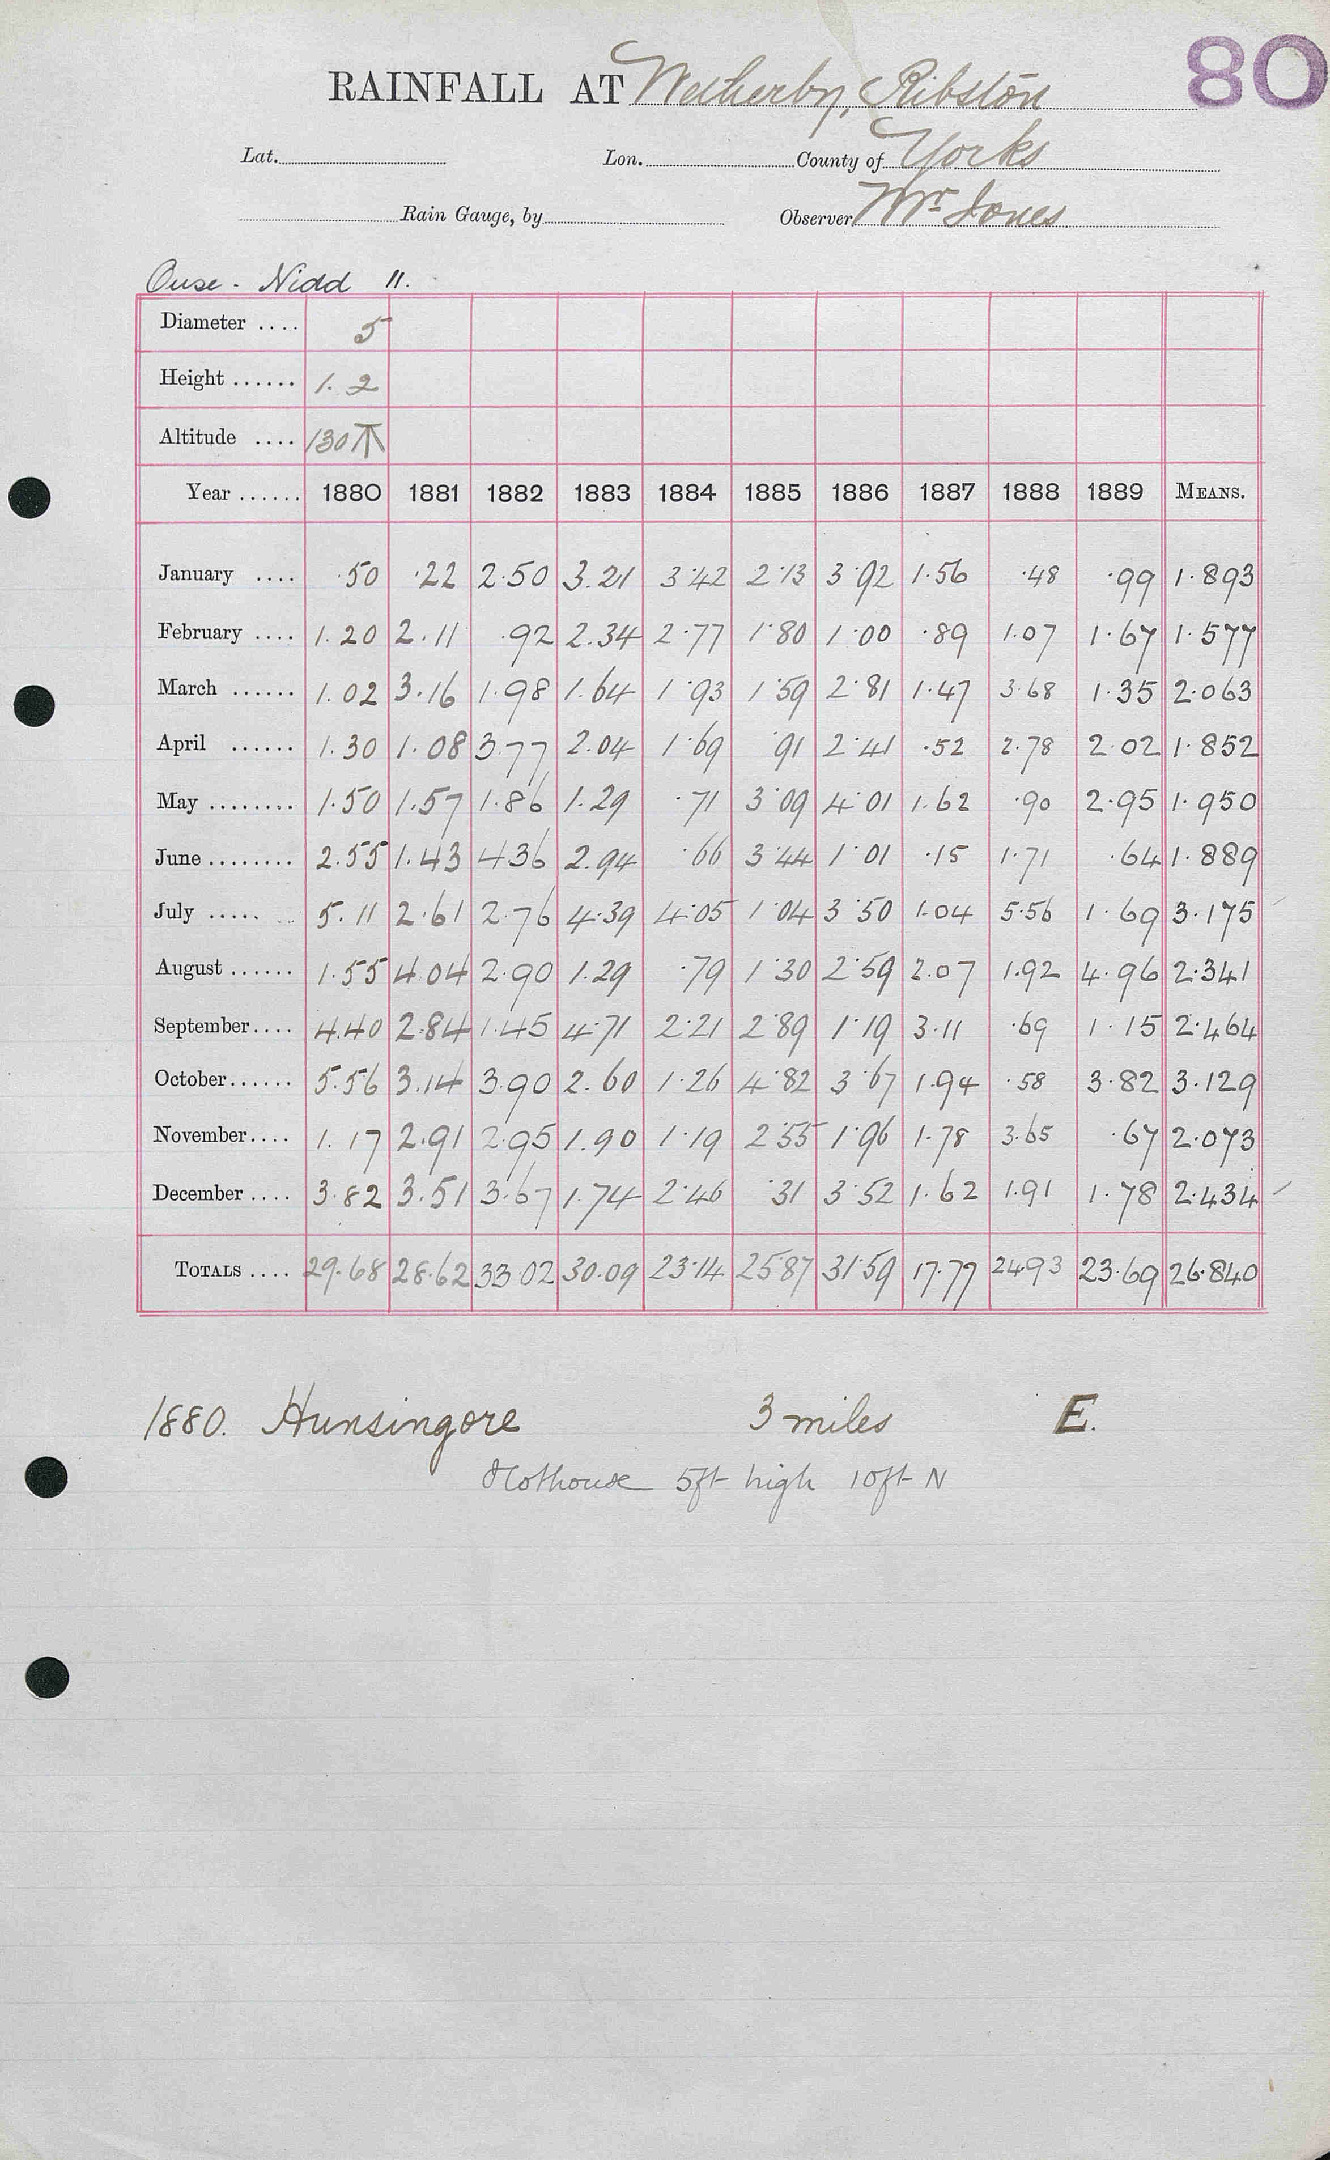 80
RAINFALL AT Wetherby, Ribston
Lat. Lon. County of Yorks
Rain Gauge, by Observer Mr Jones
Ouse - Nidd 11.
Diameter .... 5
Height ...... 1.2
Altitude .... 130
Year ...... 1880 1881 1882 1883 1884 1885 1886 1887 1888 1889 MEANS.
January .... .50 .22 2.50 3.21 3.42 2.13 3.92 1.56 .48 .99 1.893
February .... 1.20 2.11 .92 2.34 2.77 1.80 1.00 .89 1.07 1.67 1.577
March ...... 1.02 3.16 1.98 1.64 1.93 1.59 2.81 1.47 3.68 1.35 2.063
April ...... 1.30 1.08 3.77 2.04 1.69 .91 2.41 .52 2.78 2.02 1.852
May ........ 1.50 1.57 1.86 1.29 .71 3.09 4.01 1.62 .90 2.95 1.950
June ........ 2.55 1.43 4.36 2.94 .66 3.44 1.01 .15 1.71 .64 1.889
July ..... 5.11 2.61 2.76 4.39 4.05 1.04 3.50 1.04 5.56 1.69 3.175
August ...... 1.55 4.04 2.90 1.29 .79 1.30 2.59 2.07 1.92 4.96 2.341
September.... 4.40 2.84 1.45 4.71 2.21 2.89 1.19 3.11 .69 1.15 2.464
October...... 5.56 3.14 3.90 2.60 1.26 4.82 3.67 1.94 .58 3.82 3.129
November.... 1.17 2.91 2.95 1.90 1.19 2.55 1.96 1.78 3.65 .67 2.073
December .... 3.82 3.51 3.67 1.74 2.46 .31 3.52 1.62 1.91 1.78 2.434
TOTALS .... 29.68 28.62 33.02 30.09 23.14 25.87 31.59 17.77 24.93 23.69 26.840
1880. Hunsingore 3 miles E.
Hothouse 5ft high 10ft N